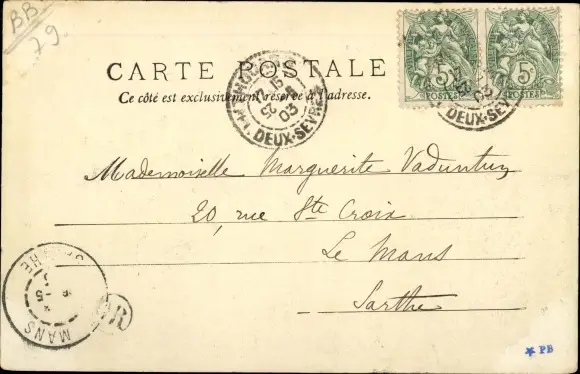 BB
79.
CARTE POSTALE
Ce côté est exclusivement réservé à l'adresse.
5
POSTES
5
POSTES
DEUX-SEVRES
03
DEUX-SEVRES
03
Mademoiselle Marguerite
20, rue Ste Croix
Le Mans
Sarthe
MANS
PB